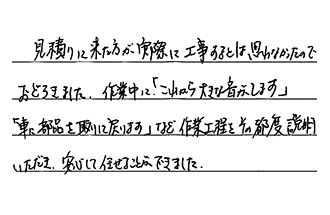 見積りに来た方が実際に工事するとは思わなかったので
おどろきました。作業中に「これから大きな音がします」
「車に部品を取りに戻ります」など作業工程をその都度説明
いただき、安心して任せることができました。